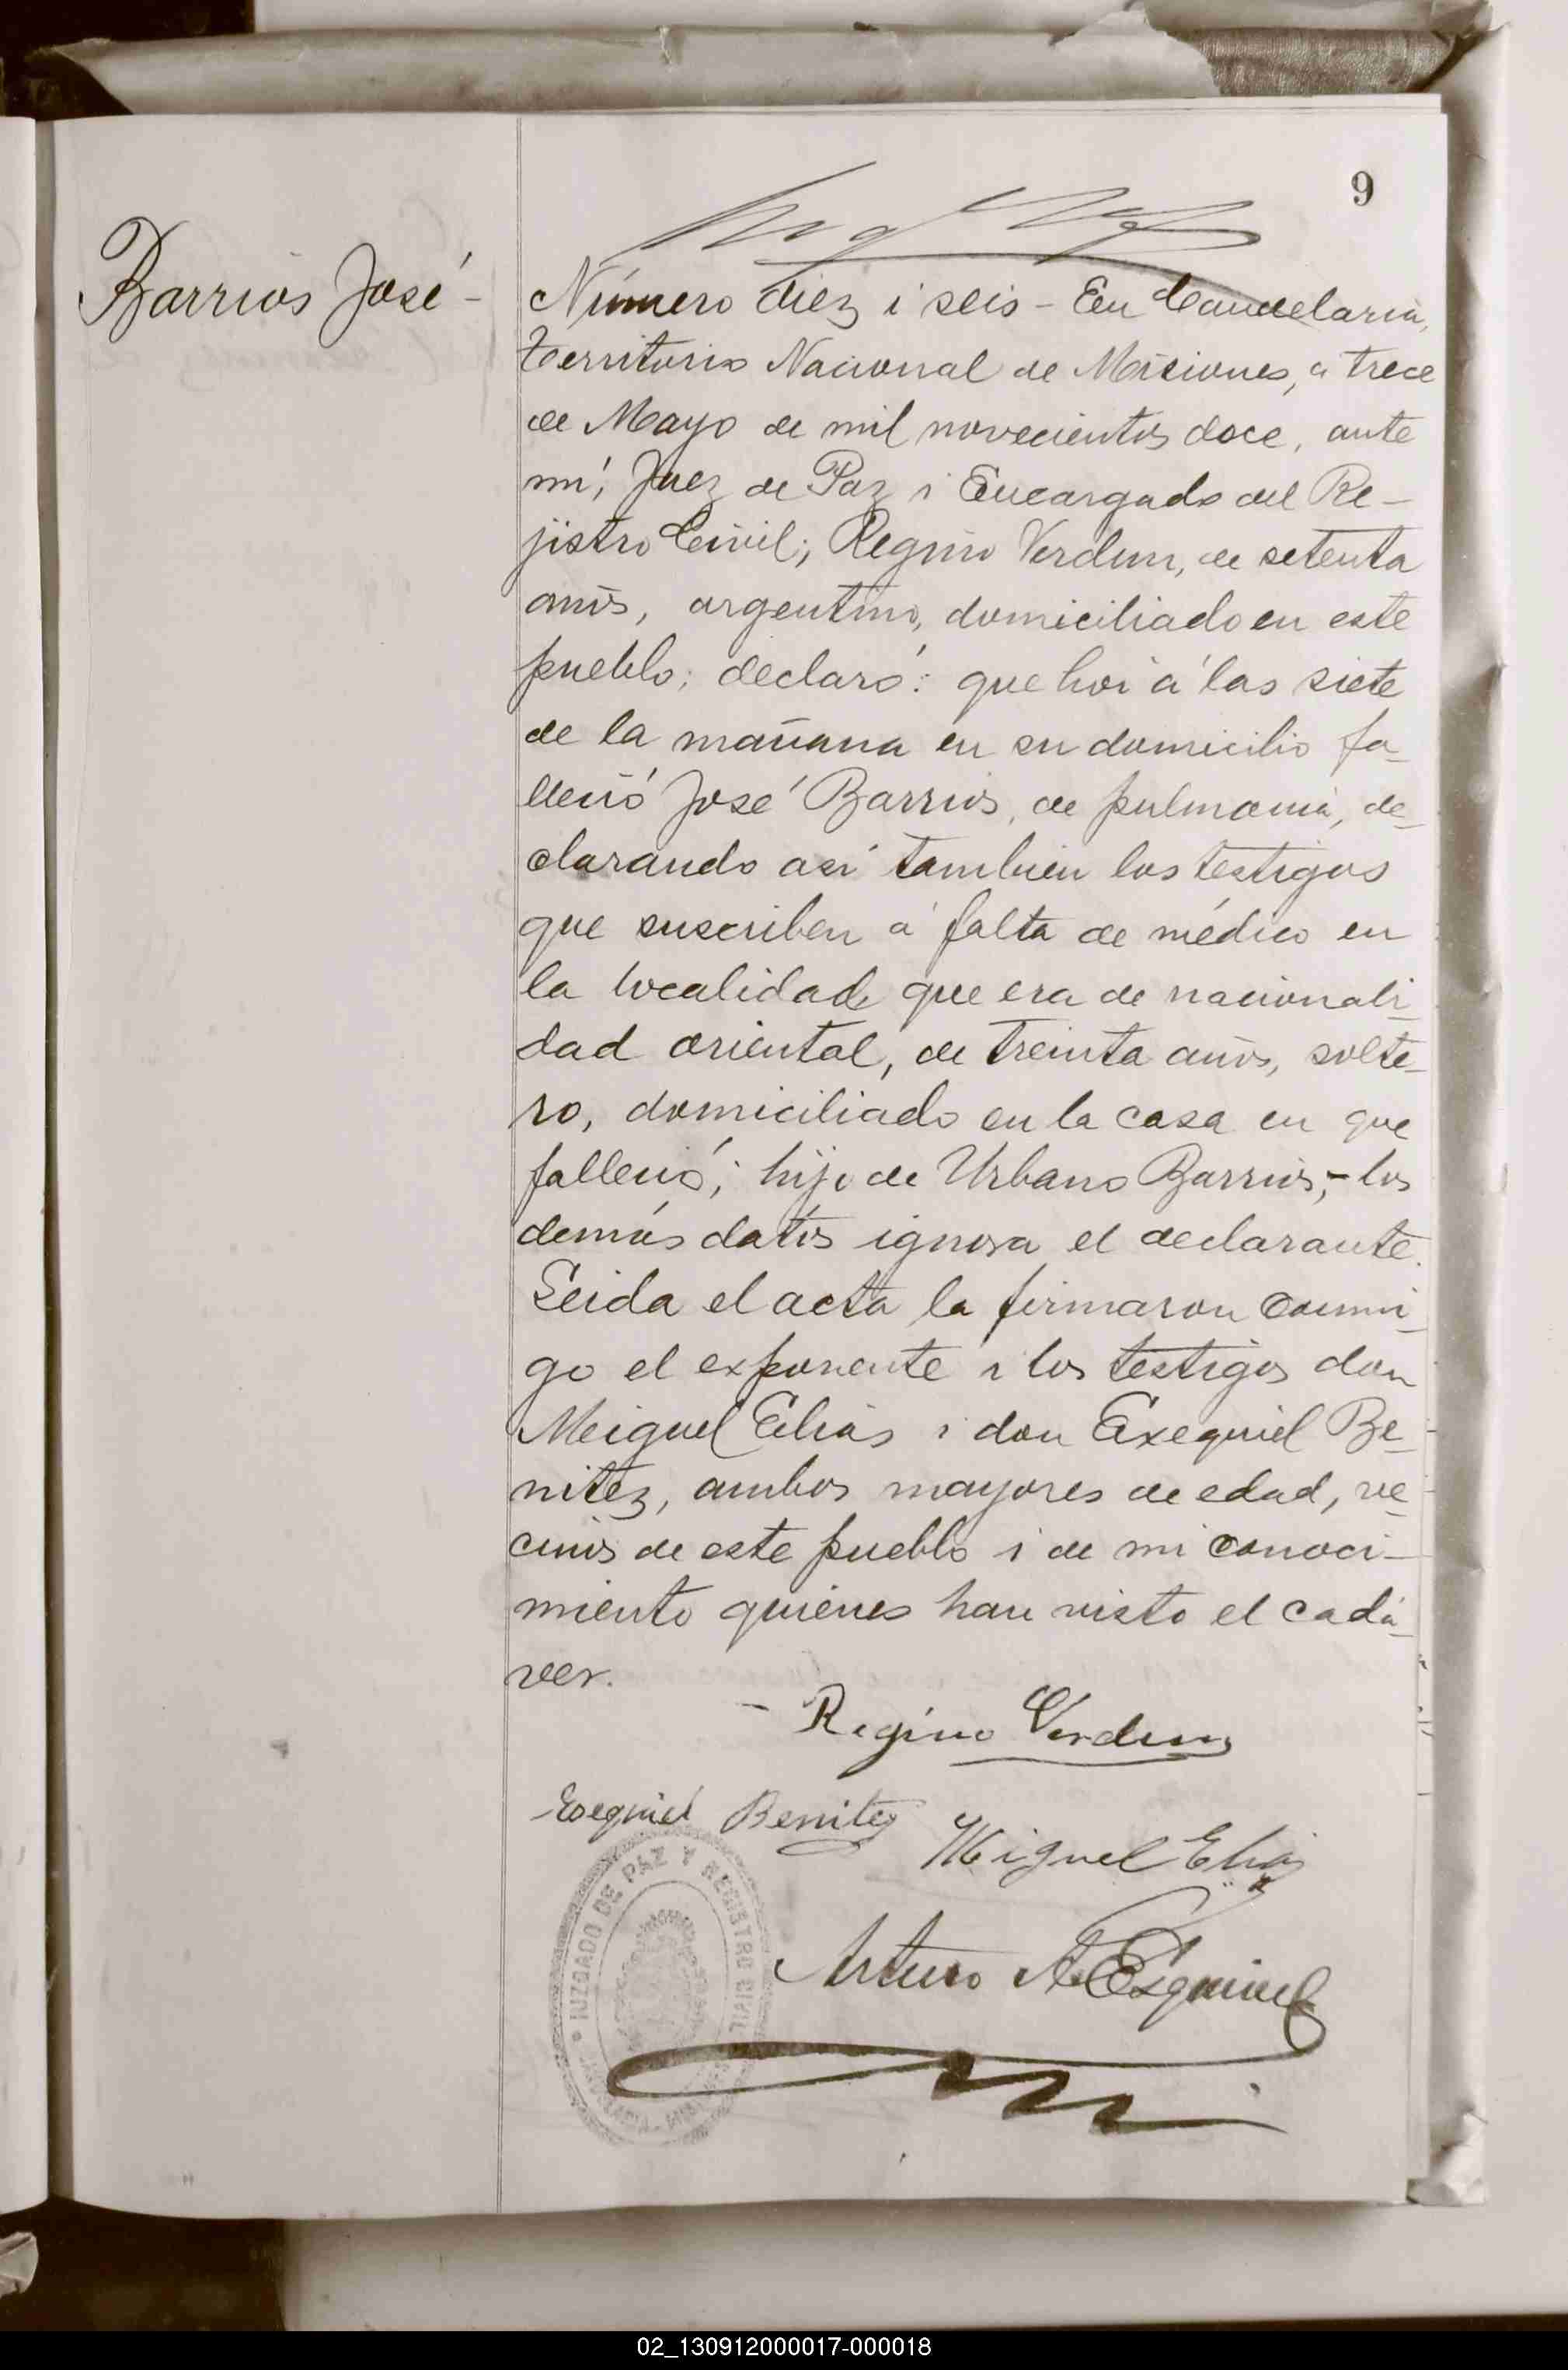 9
Barrios José -
Número diez i seis - En Candelaria,
Territorio Nacional de Misiones, a trece
de Mayo de mil novecientos doce, ante
mí, Juez de Paz i Encargado del Re-
jistro Civil; Regino Verdun, de setenta
años, argentino, domiciliado en este
pueblo; declaró: que hoi á las siete
de la mañana en su domicilio fa-
lleció José Barrios, de pulmonía, de-
clarando así tambien los testigos
que suscriben á falta de médico en
la localidad, que era de nacionali-
dad oriental, de treinta años, solte-
ro, domiciliado en la casa en que
falleció; hijo de Urbano Barrios; - los
demás datos ignora el declarante.
Leida el acta la firmaron conmi-
go el exponente i los testigos don
Miguel Elias i don Exequiel Be-
nitez, ambos mayores de edad, ve-
cinos de este pueblo i de mi conoci-
miento quiénes han visto el cadá-
ver.
- Regino Verdun
Exequiel Benitez
Miguel Elias
Arturo A Esquivel
JUZGADO DE PAZ Y REGISTRO CIVIL
02_130912000017-000018